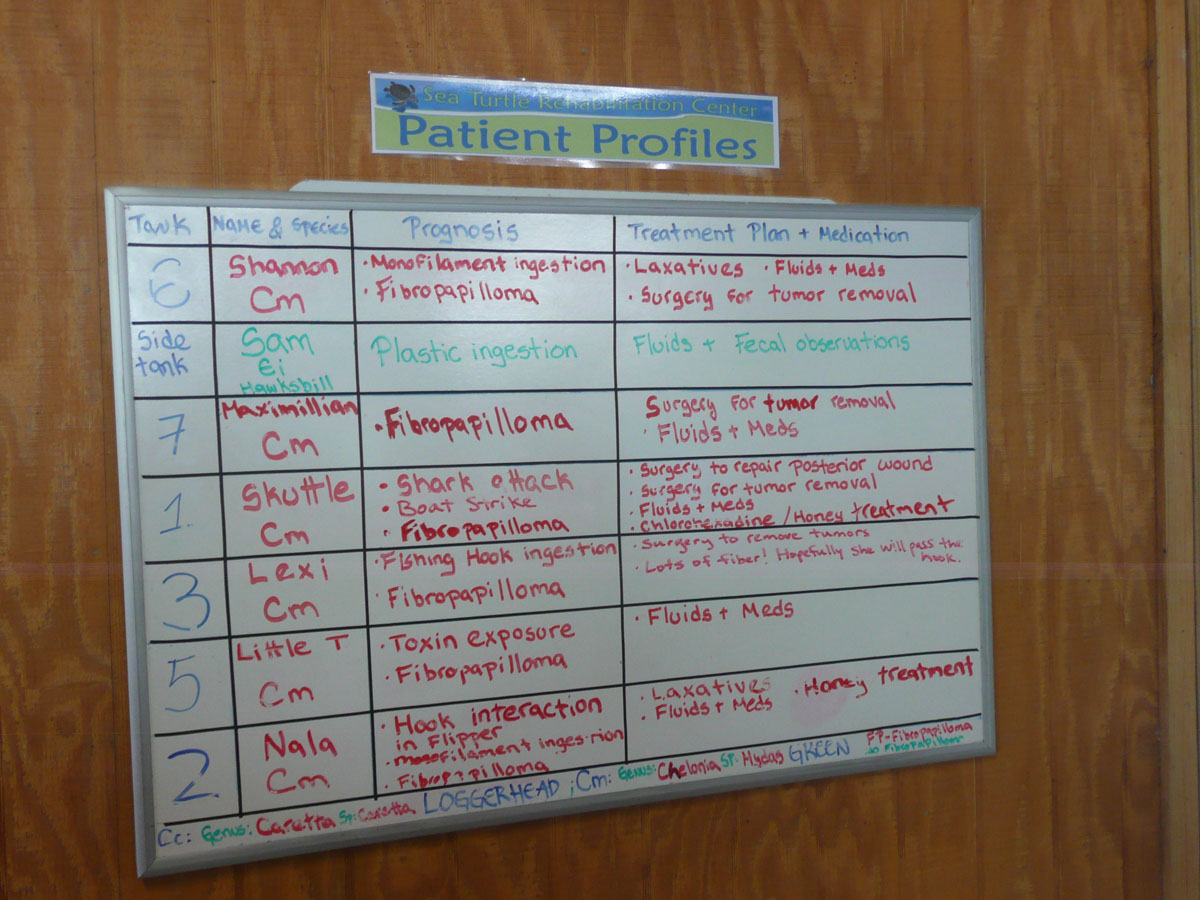 Sea Turtle Rehabilitation Center
Patient Profiles
Tank
Name & Species
Prognosis
Treatment Plan + Medication
6
Shannon
Cm
• Monofilament ingestion
• Fibropapilloma
• Laxatives • Fluids + Meds
• Surgery for tumor removal
Side
tank
Sam
Ei
Hawksbill
Plastic ingestion
Fluids + Fecal observations
7
Maximillian
Cm
• Fibropapilloma
Surgery for tumor removal
• Fluids + Meds
1.
Skuttle
Cm
• Shark attack
• Boat Strike
• Fibropapilloma
• Surgery to repair posterior wound
• Surgery for tumor removal
• Fluids + Meds
• Chlorohexadine / Honey treatment
3
Lexi
Cm
• Fishing Hook ingestion
• Fibropapilloma
• Surgery to remove tumors
• Lots of fiber! Hopefully she will pass the
hook.
5
Little T
Cm
• Toxin exposure
• Fibropapilloma
• Fluids + Meds
2
Nala
Cm
• Hook interaction
in Flipper
• monofilament ingestion
• Fibropapilloma
• Laxatives • Honey treatment
• Fluids + Meds
Cc: Genus: Caretta Sp: Caretta LOGGERHEAD ; Cm: Genus: Chelonia Sp: Mydas GREEN
FP-Fibropapilloma
Fibropapilloma